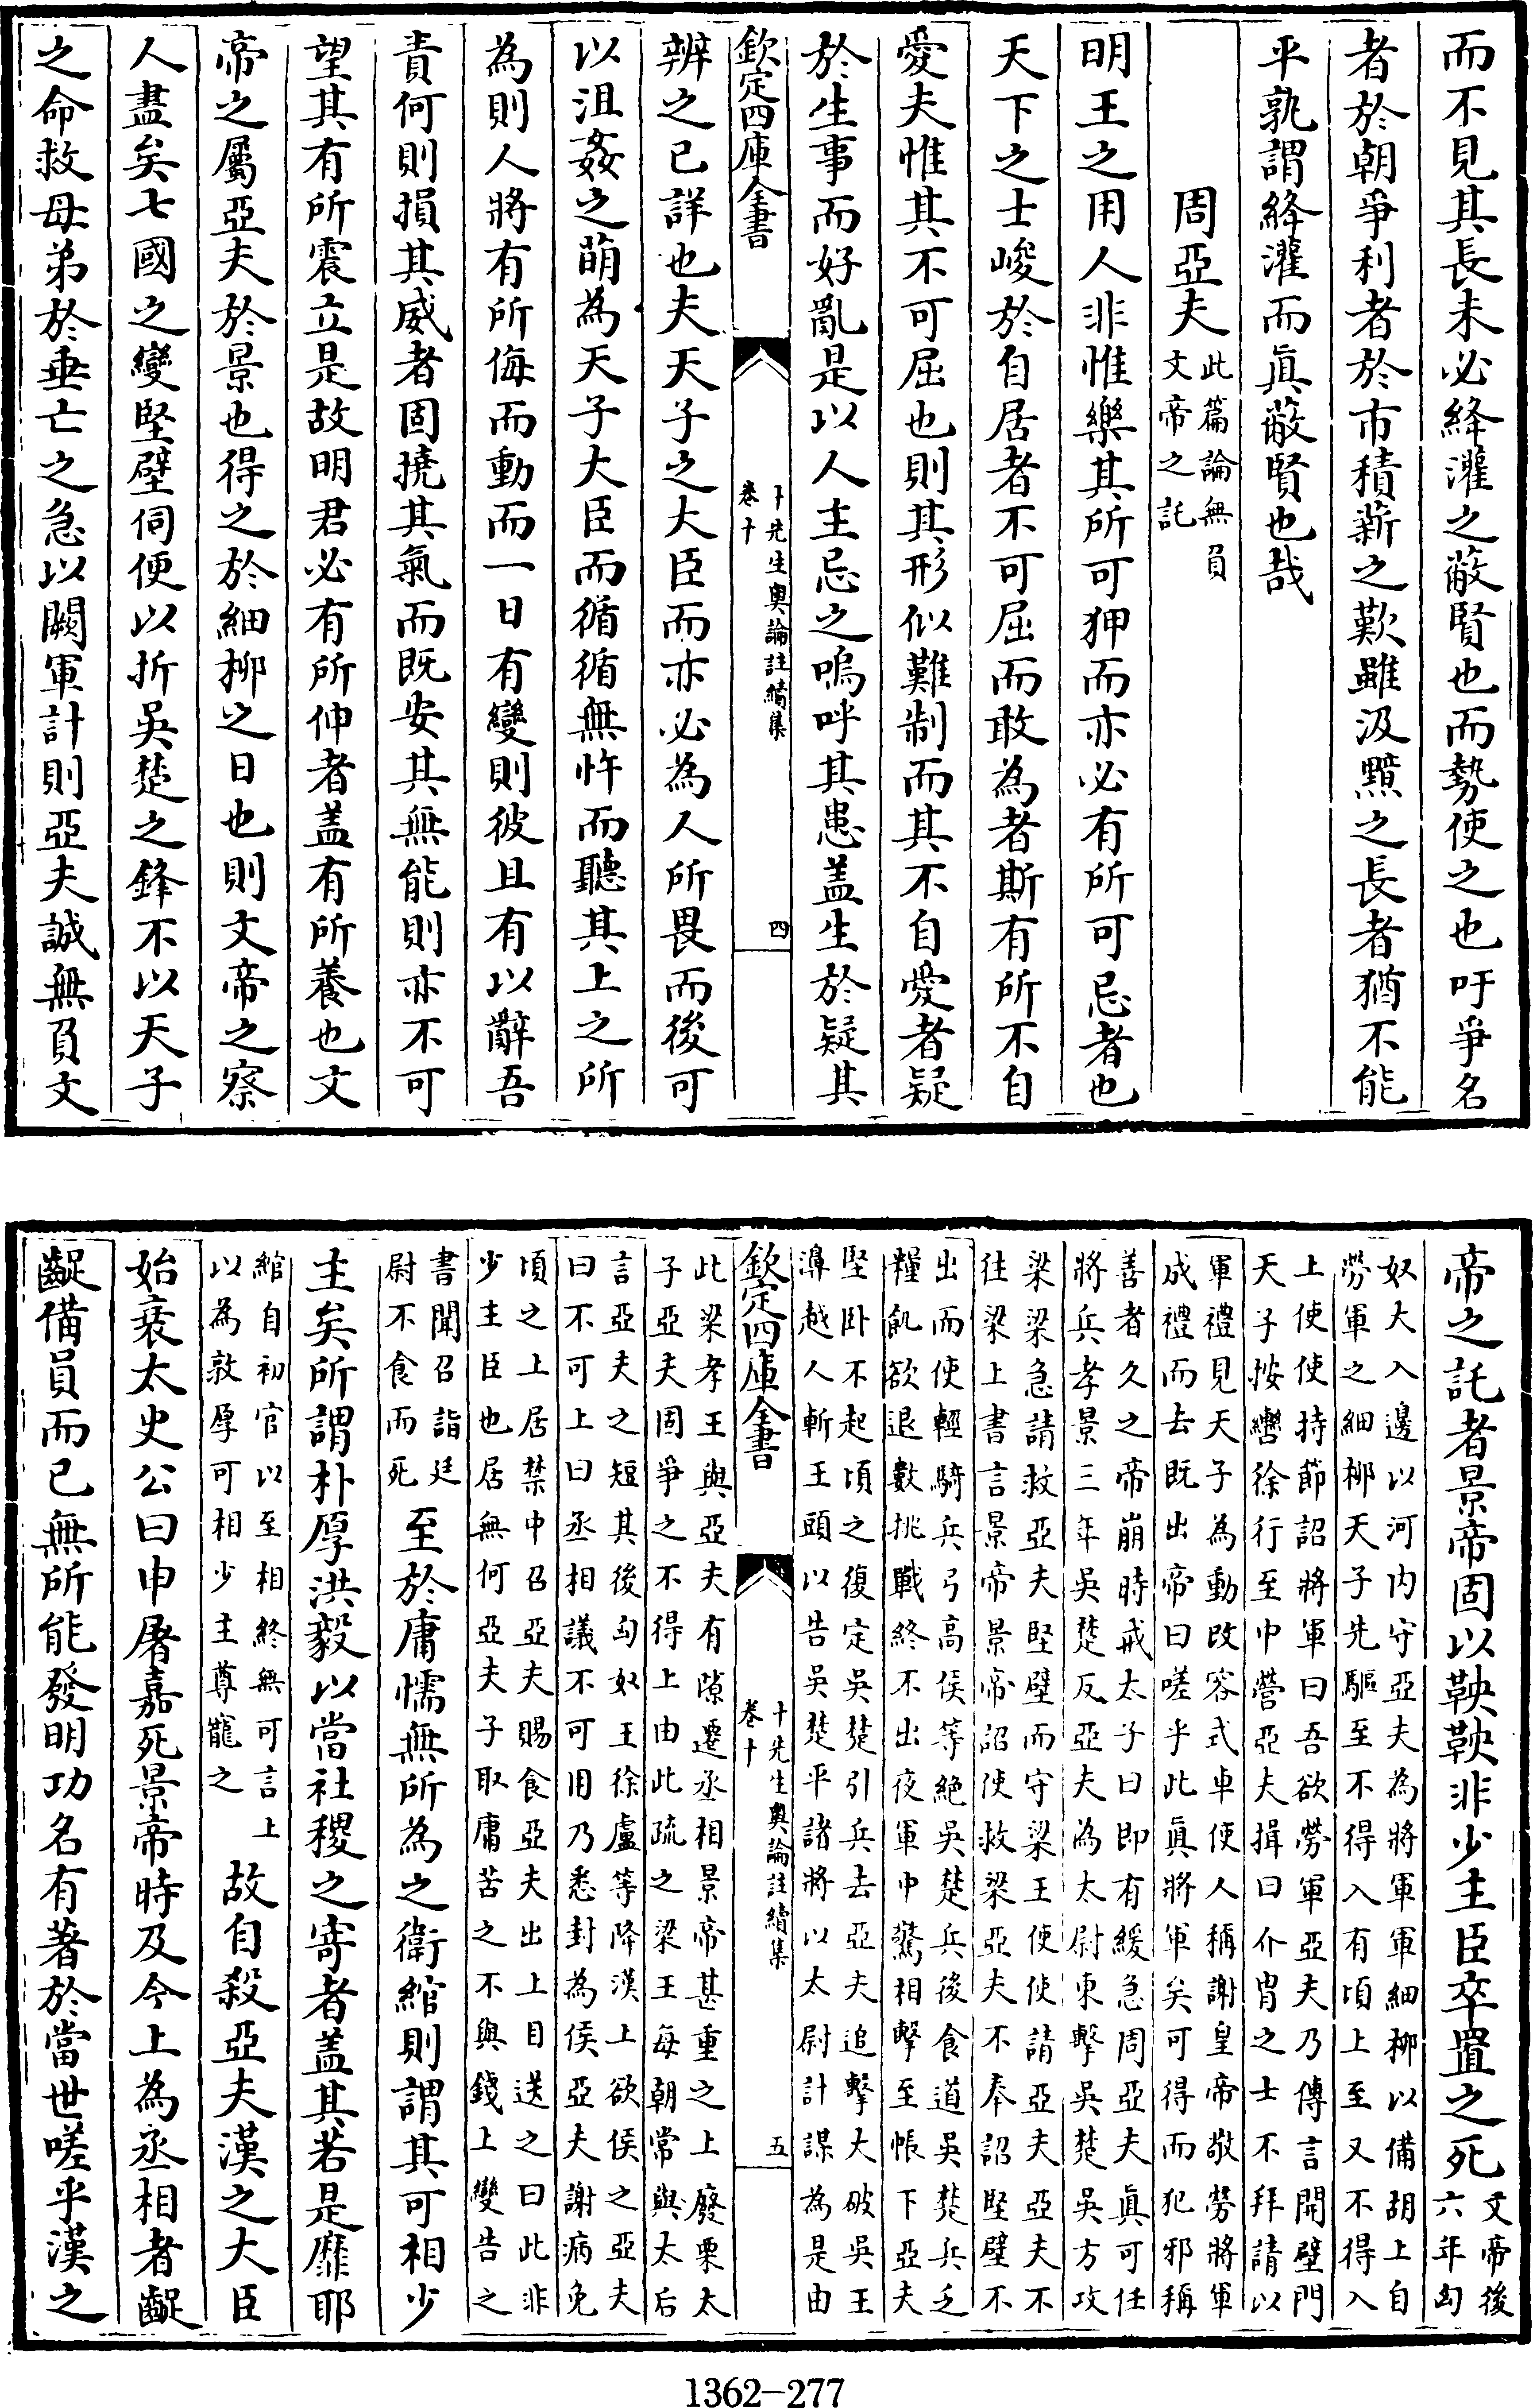 而不見其長未必絳灌之蔽賢也而勢使之也吁爭名
者於朝爭利者於市積薪之歎雖汲黯之長者猶不能
平孰謂絳灌而真蔽賢也哉
周亞夫此篇論無負
文帝之託
明王之用人非惟樂其所可狎而亦必有所可忌者也
天下之士峻於自居者不可屈而敢為者斯有所不自
愛夫惟其不可屈也則其形似難制而其不自愛者疑
於生事而好亂是以人主忌之嗚呼其患盖生於疑其
欽定四庫全書
十先生奧論註續集
卷十
四
辨之已詳也夫天子之大臣而亦必為人所畏而後可
以沮姦之萌為天子大臣而循循無忤而聽其上之所
為則人將有所侮而動而一日有變則彼且有以辭吾
責何則損其威者固撓其氣而既安其無能則亦不可
望其有所震立是故明君必有所伸者盖有所養也文
帝之屬亞夫於景也得之於細柳之日也則文帝之察
人盡矣七國之變堅壁伺便以折吳楚之鋒不以天子
之命救母弟於垂亡之急以闕軍計則亞夫誠無負文
帝之託者景帝固以鞅鞅非少主臣卒置之死文帝後
六年匈
奴大入邊以河內守亞夫為將軍軍細柳以備胡上自
勞軍之細柳天子先驅至不得入有頃上至又不得入
上使使持節詔將軍曰吾欲勞軍亞夫乃傳言開壁門
天子按轡徐行至中營亞夫揖曰介胄之士不拜請以
軍禮見天子為動改容式車使人稱謝皇帝敬勞將軍
成禮而去既出帝曰嗟乎此真將軍矣可得而犯邪稱
善者久之帝崩時戒太子曰即有緩急周亞夫真可任
將兵孝景三年吳楚反亞夫為太尉東擊吳楚吳方攻
梁梁急請救亞夫堅壁而守梁王使使請亞夫亞夫不
往梁上書言景帝景帝詔使救梁亞夫不奉詔堅壁不
出而使輕騎兵弓高侯等絕吳楚兵後食道吳楚兵乏
糧飢欲退數挑戰終不出夜軍中驚相擊至帳下亞夫
堅卧不起頃之復定吳楚引兵去亞夫追擊大破吳王
濞越人斬王頭以告吳楚平諸將以太尉計謀為是由
欽定四庫全書
十先生奧論註續集
卷十
五
此梁孝王與亞夫有隙遷丞相景帝甚重之上廢栗太
子亞夫固爭之不得上由此疏之梁王每朝常與太后
言亞夫之短其後匈奴王徐盧等降漢上欲侯之亞夫
曰不可上曰丞相議不可用乃悉封為侯亞夫謝病免
頃之上居禁中召亞夫賜食亞夫出上目送之曰此非
少主臣也居無何亞夫子取庸苦之不與錢上變告之
書聞召詣廷
尉不食而死至於庸懦無所為之衛綰則謂其可相少
主矣所謂朴厚洪毅以當社稷之寄者盖其若是靡耶
綰自初官以至相終無可言上
以為敦厚可相少主尊寵之故自殺亞夫漢之大臣
始衰太史公曰申屠嘉死景帝時及今上為丞相者齪
齪備員而已無所能發明功名有著於當世嗟乎漢之
1362-277